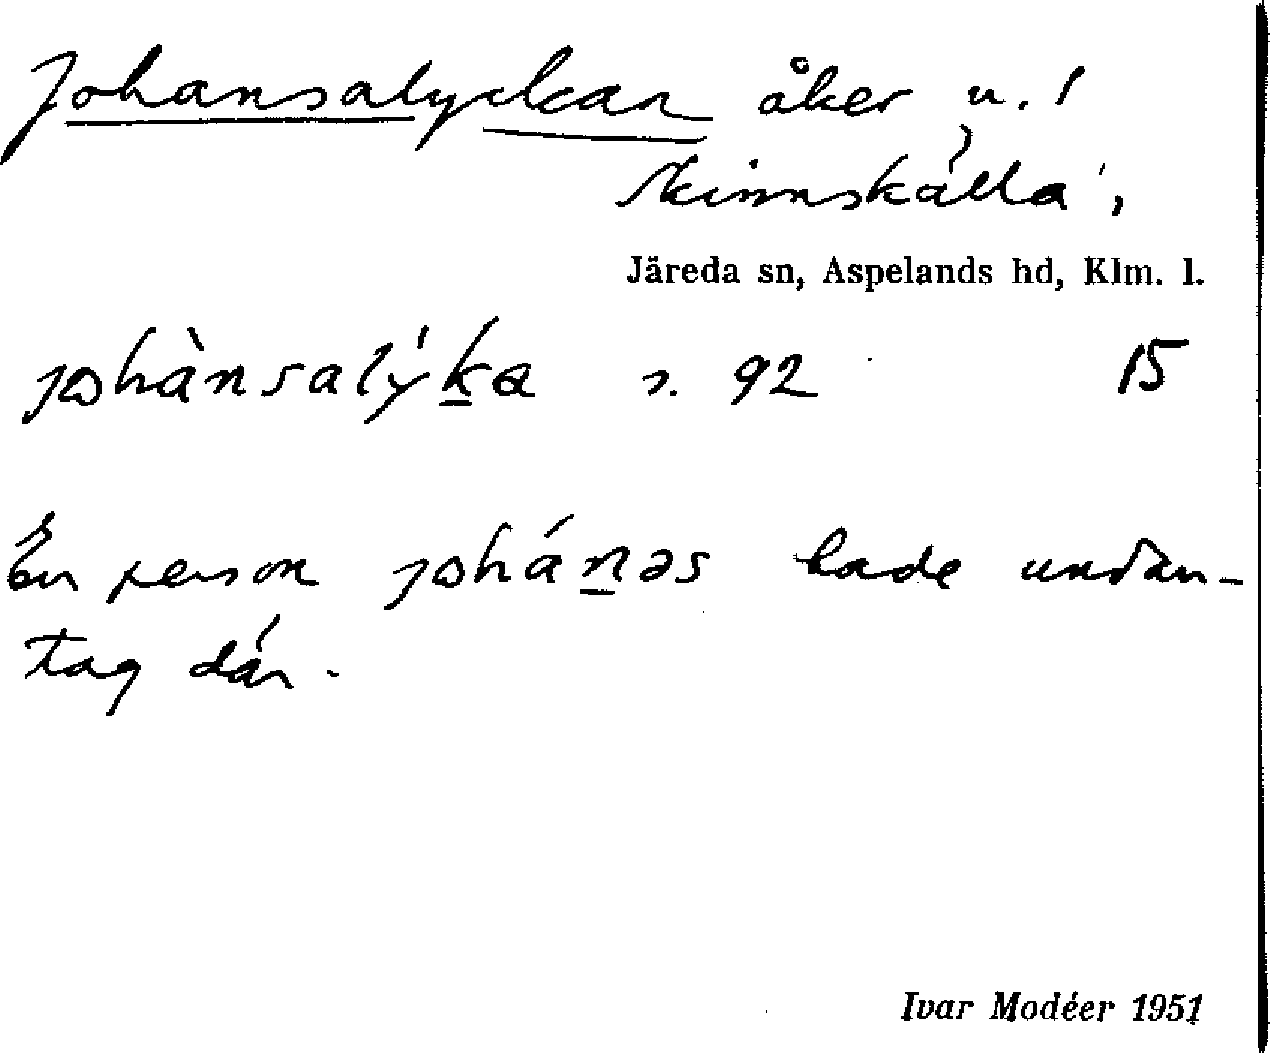 Johansalyckan åker u. /
Skinnskälla ',
Järeda sn, Aspelands hd, Klm. l.
johànsalýka s. 92 15
En person johánəs hade undan-
tag där.
Ivar Modéer 1951